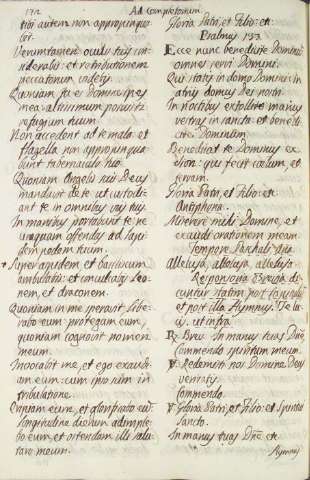 172
Ad Completorium.
tibi autem non appropinqua-
bit.
Verumtamen oculis tuis con-
siderabis: et retributionem
peccatorum videbis.
Quoniam tu es Domine spes
mea: altissimum posuisti
refugium tuum.
Non accedent ad te mala: et
flagella non appropinqua-
bunt tabernaculo tuo.
Quoniam Angelis suis Deus
mandavit de te: ut custodi-
ant te in omnibus viis tuis.
In manibus portabunt te: ne
unquam offendas ad lapi-
dem pedem tuum.
Super aspidem, et basiliscum
ambulabis: et conculcabis Leo-
nem, et draconem.
Quoniam in me speravit, libe-
rabo eum: protegam eum,
quoniam cognovit nomen
meum.
Invocabit me, et ego exaudi-
am eum: cum ipso sum in
tribulatione
Eripiam eum, et glorificabo eũ.
Longitudine dierum adimple-
bo eum: et ostendam illi salu-
tare meum.
Gloria Patri, et Filio: et
Psalmus 133.
Ecce nunc benedicite Dominũ
omnes servi Domini.
Qui statis in domo Domini: in
atriis domus dei nostri.
In noctibus extollite manus
vestras in sancta: et benedi-
cite Dominum.
Benedicat te Dominus ex
Sion: qui fecit cœlum, et
terram.
Gloria Patri, et Filio: et
Antiphona.
Miserere mihi Domine, et
exaudi orationem meam.
Tempore Paschali
Alleluja, alleluja, alleluja.
Responsoria Brevia di-
cuntur statim post
et post illa Hymnus: Te lu-
cis, ut infra
R. Brev. In manus tuas Dñe,
Commendo spiritum meum.
V. Redemisti nos Domine, Deus
veritatis
Commendo.
V. Gloria Patri, et Filio: et Spiritui
Sancto.
In manus tuas Dñe etc
Hymnus